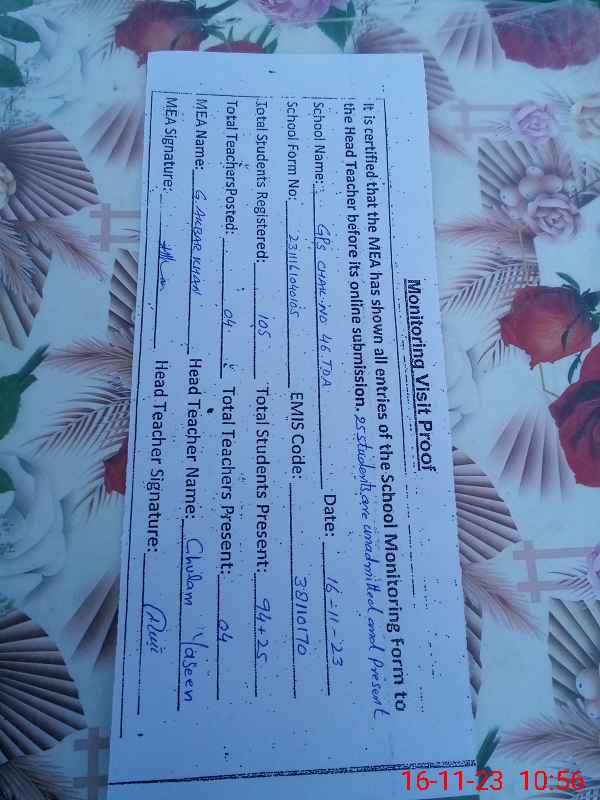 Monitoring Visit Proof
It is certified that the MEA has shown all entries of the School Monitoring Form to
the Head Teacher before its online submission. 25 students are unadmitted and present
School Name: GPS CHAK NO 46 TDA Date: 16-11-23
School Form No: 231116104016S EMIS Code: 38110170
Total Students Registered: 105 Total Students Present: 94+25
Total TeachersPosted: 04 Total Teachers Present: 04
MEA Name: G. AKBAR KHAN Head Teacher Name: Ghulam Yaseen
MEA Signature: Head Teacher Signature:
16-11-23 10:56